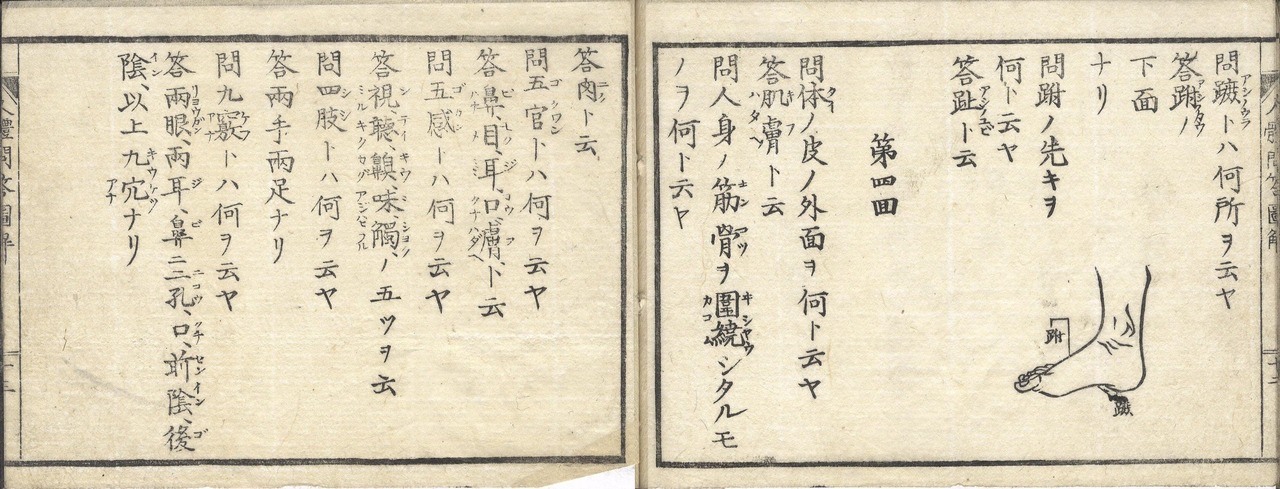 問蹠トハ何所ヲ云ヤ
答跗ノ
下面
ナリ
問跗ノ先キヲ
何ト云ヤ
答趾ト云
跗
蹠
第四回
問体ノ皮ノ外面ヲ何ト云ヤ
答肌膚ト云
問人身ノ筋骨ヲ圍繞シタルモ
ノヲ何ト云ヤ
答肉ト云
問五官トハ何ヲ云ヤ
答鼻、目、耳、口、膚、ト云
問五感トハ何ヲ云ヤ
答視、聽、鼻臭、味、觸、ノ五ツヲ云
問四肢トハ何ヲ云ヤ
答兩手兩足ナリ
問九竅トハ何ヲ云ヤ
答兩眼、兩耳、鼻二孔、口、前陰、後
陰、以上九穴ナリ
人體問答圖解